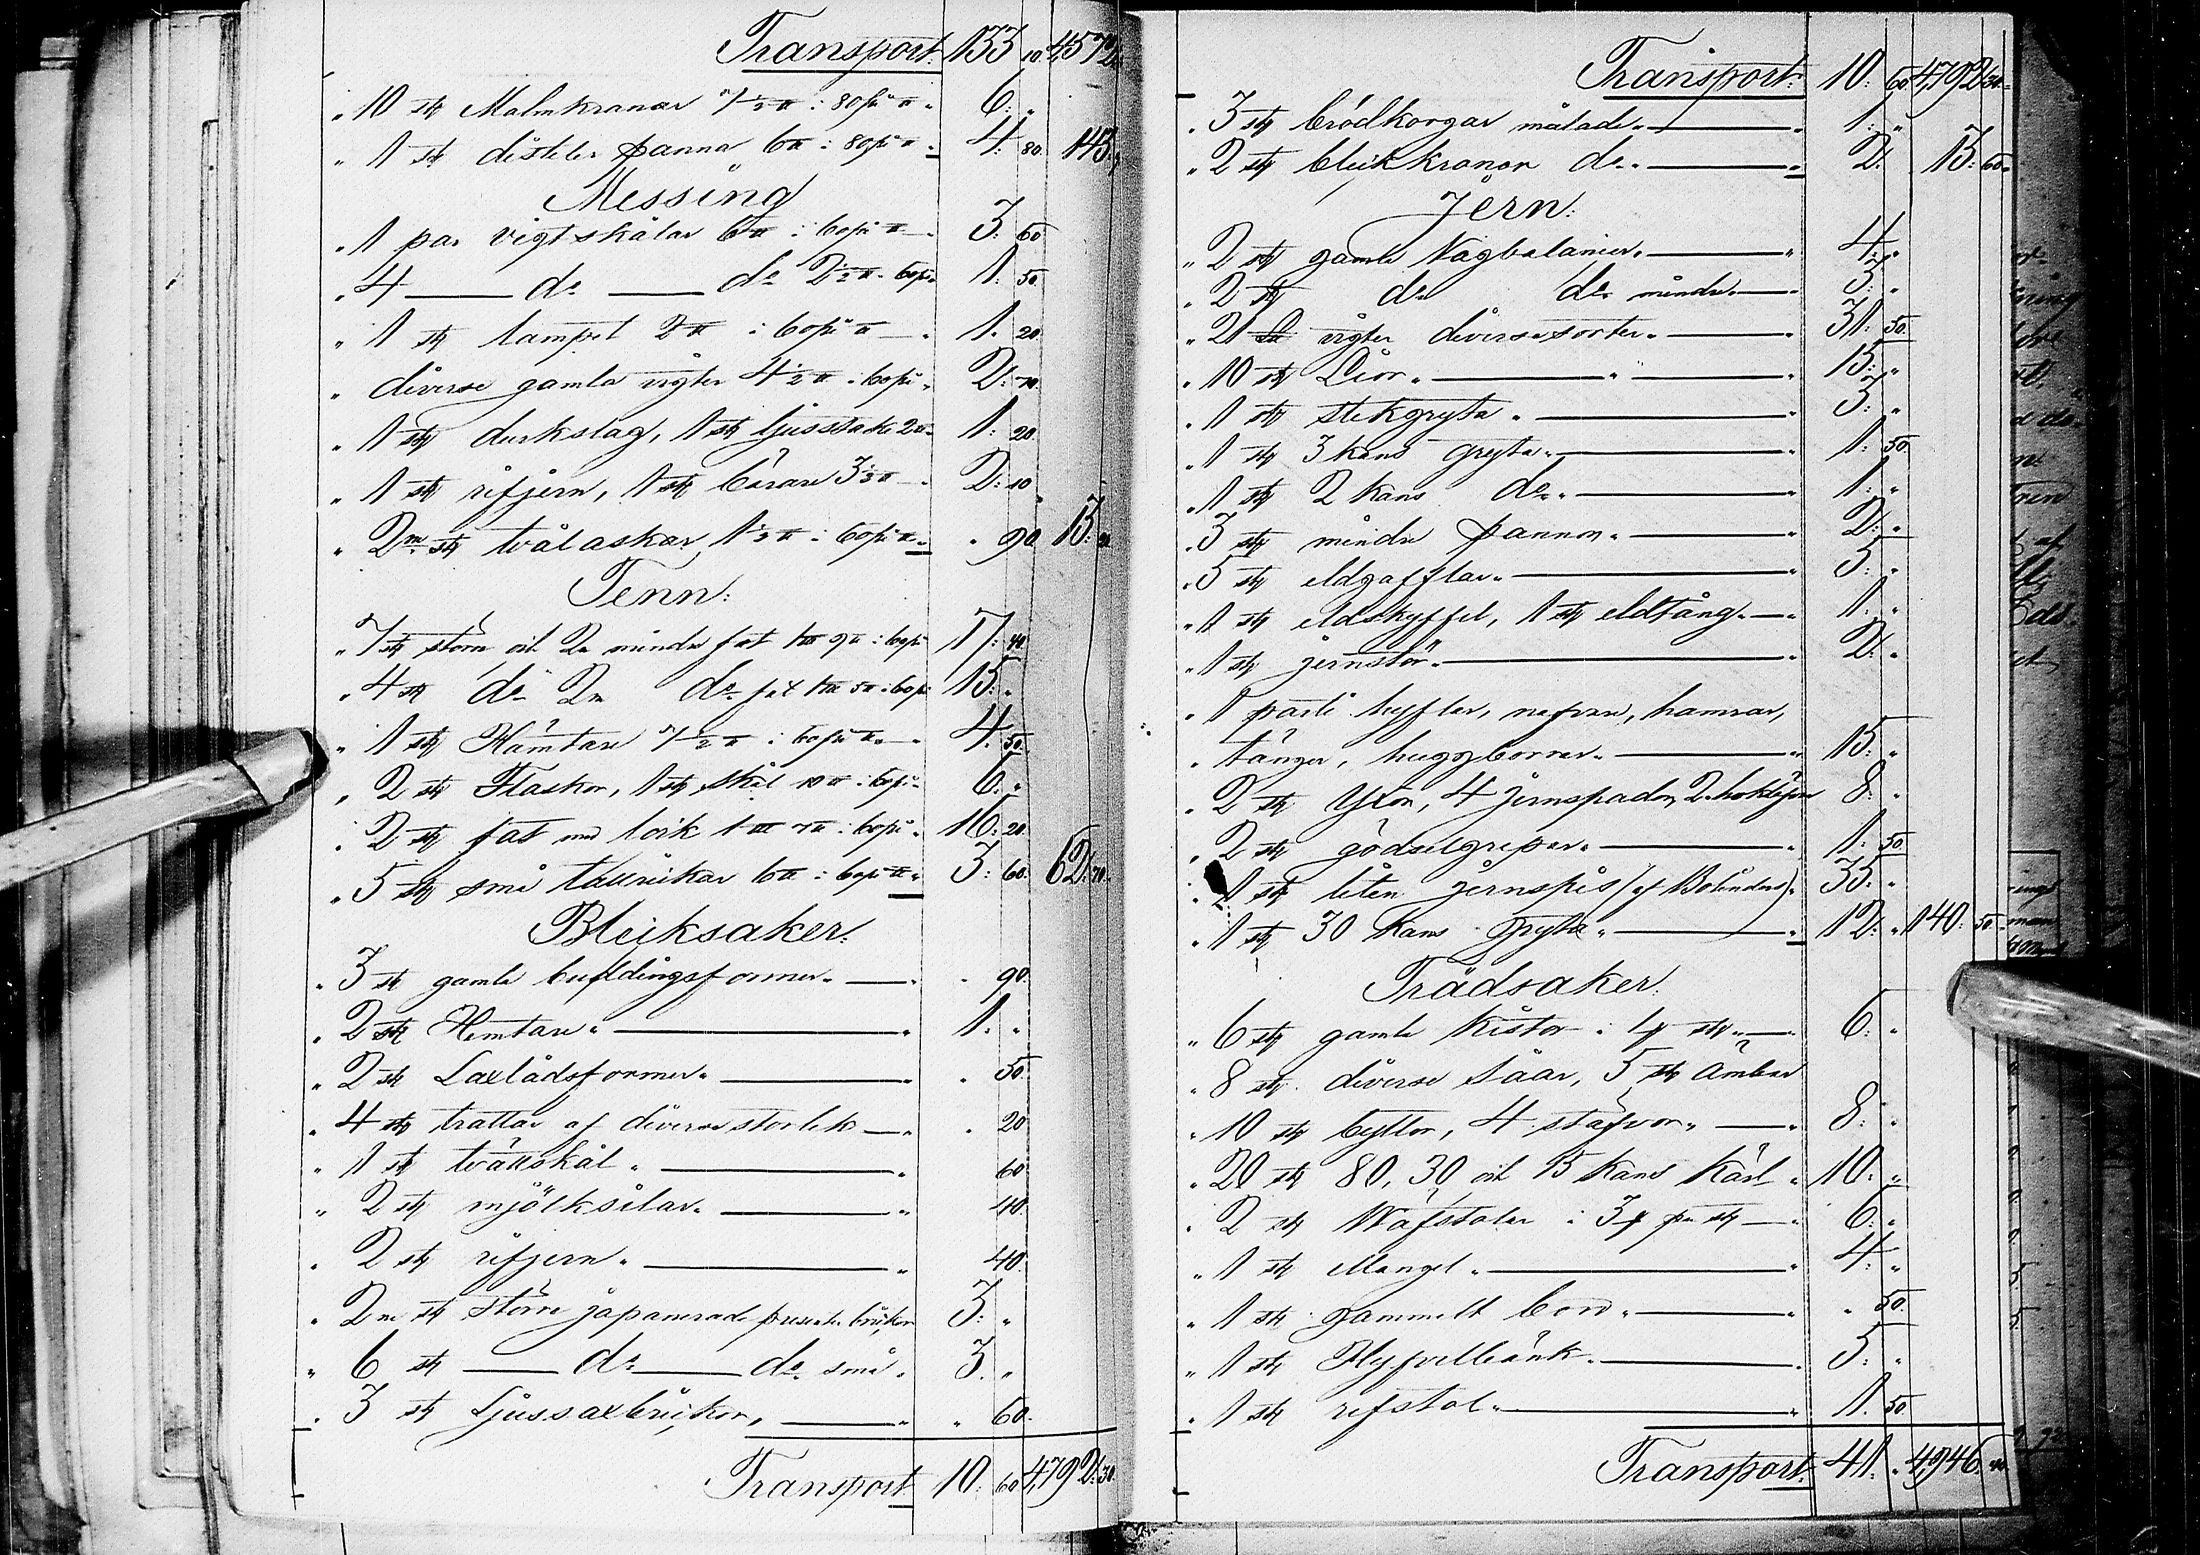 Transport: 133 10. 4,572
" 10 st Malmkranar 7½ ℔ : 80 pr ℔ " 6: "
" 1 st distiler panna 6 ℔ : 80 pr ℔ " 4: 80. 143:
Messing
" 1 par vigtskålar 6 ℔ : 60 pr ℔ — " 3: 60
" 4 — do — do 2½ ℔ . 60 pr " 1: 50.
" 1 st lampet 2 ℔ : 60 pr ℔ — " 1. 20
" diverse gamla vigter 4½ ℔ : 60 pr " 2: 70.
" 1 st durkslag, 1 st ljusstake 2 ℔ " 1: 20.
" 1 st rifjern, 1 st 3½ ℔ — " 2: 10
" 2ne st tvålaskar 1½ ℔ : 60 pr ℔ " " 90 15:
Tenn:
" 7 st större och 2 mindre fat 9 ℔ : 60 pr 17: 40
" 4 st do 2ne do fat 5 ℔ : 60 pr 15: "
" 1 st Hämtare 7½ ℔ : 60 pr ℔ — " 4. 50.
" 2 st Flaskor, 1 st skål 10 ℔ : 60 pr " 6. "
" 2 st fat med lock 7 ℔ : 60 pr " 16: 20.
" 5 st små tallrikar 6 ℔ : 60 pr ℔ " 3: 60. 62: 70.
Bleiksaker:
" 3 st gamla buddingsformer " — " " 90.
" 2 st Hemtare " — " 1. "
" 2 st Laxlådsformer " — " " 50.
" 4 st trattar af diverse storlek — " " 20
" 1 st tvättskål " — " 60
" 2 st mjölksilar " — " 40.
" 2 st rifjern " — " 40.
" 2ne st större japanerade presenter brickor 3: "
" 6 st — do — do små " 3. "
" 3 st Ljussaxbrickor, — " " 60.
Transport 10: 60 4,792: 30.
Transport: 10: 60 4,792 30.
" 3 st brödkorgar målade " — " 1: "
" 2 st bleikkronor do " — " 2: 13: 60.
Jern:
" 2 st gamla Vågbalanser " — " 4: "
" 2 st do do mindre — " 3: "
" 21 vigter diverse sorter " — " 31: 50.
" 10 st Liar " — " — " 15: "
" 1 st stekgryta " — " 3: "
" 1 st 3 kans gryta " — " 1: 50.
" 1 st 2 kans do " — " 1: "
" 3 st mindre pannor " — " 2: "
" 5 st eldgafflar " — " 5: "
" 1 st eldskyffel, 1 st eldtång " — " 1: "
" 1 st jernstör " — " 2: "
" 1 parti hyflar, nafvare, hamrar,
" tänger, huggborrar " — " 15: "
" 2 st Yxor, 4 jernspador, 2 8: "
" 2 st gödselgrepar " — " 1. 50.
" 1 st liten jernspis (af Bolinders) " 35: "
" 1 st 30 kans gryta " — " 12: " 140: 50.
Trädsaker:
" 6 st gamla kistor : st " — " 6: "
" 8 st. diverse Såar, 5 st Ämbar
" 10 st byttor, 4 stäfvor " — " 8: "
" 20 st 80, 30 och 15 kans Kärl " 10: "
" 2 st Wäfstolar : 3 pr st — " 6: "
" 1 st Mangel " — " 4: "
" 1 st gammelt bord " — " " 50.
" 1 st Hyfvelbänk " — " 5: "
" 1 st refstol " — " 1. 50.
Transport: 41: " 4,946. 40